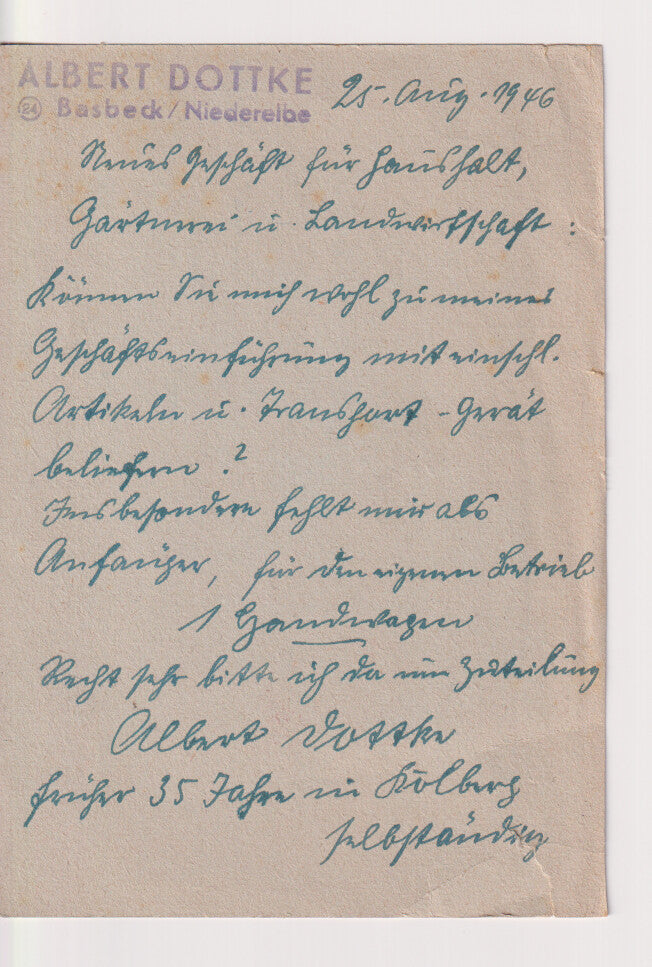 ALBERT DOTTKE
24 Basbeck/Niederelbe
25. Aug. 1946
Neues Geschäft für Haushalt,
Gärtnerei u. Landwirtschaft:
Können Sie mich wohl zu meiner
Geschäftseinführung mit einschl.
Artikeln u. Transport-Gerät
beliefern?
Insbesondere fehlt mir als
Anfänger, für den eigenen Betrieb
1 Handwagen
Recht sehr bitte ich da um Zuteilung
Albert Dottke
früher 35 Jahre in Kolberg
selbständig